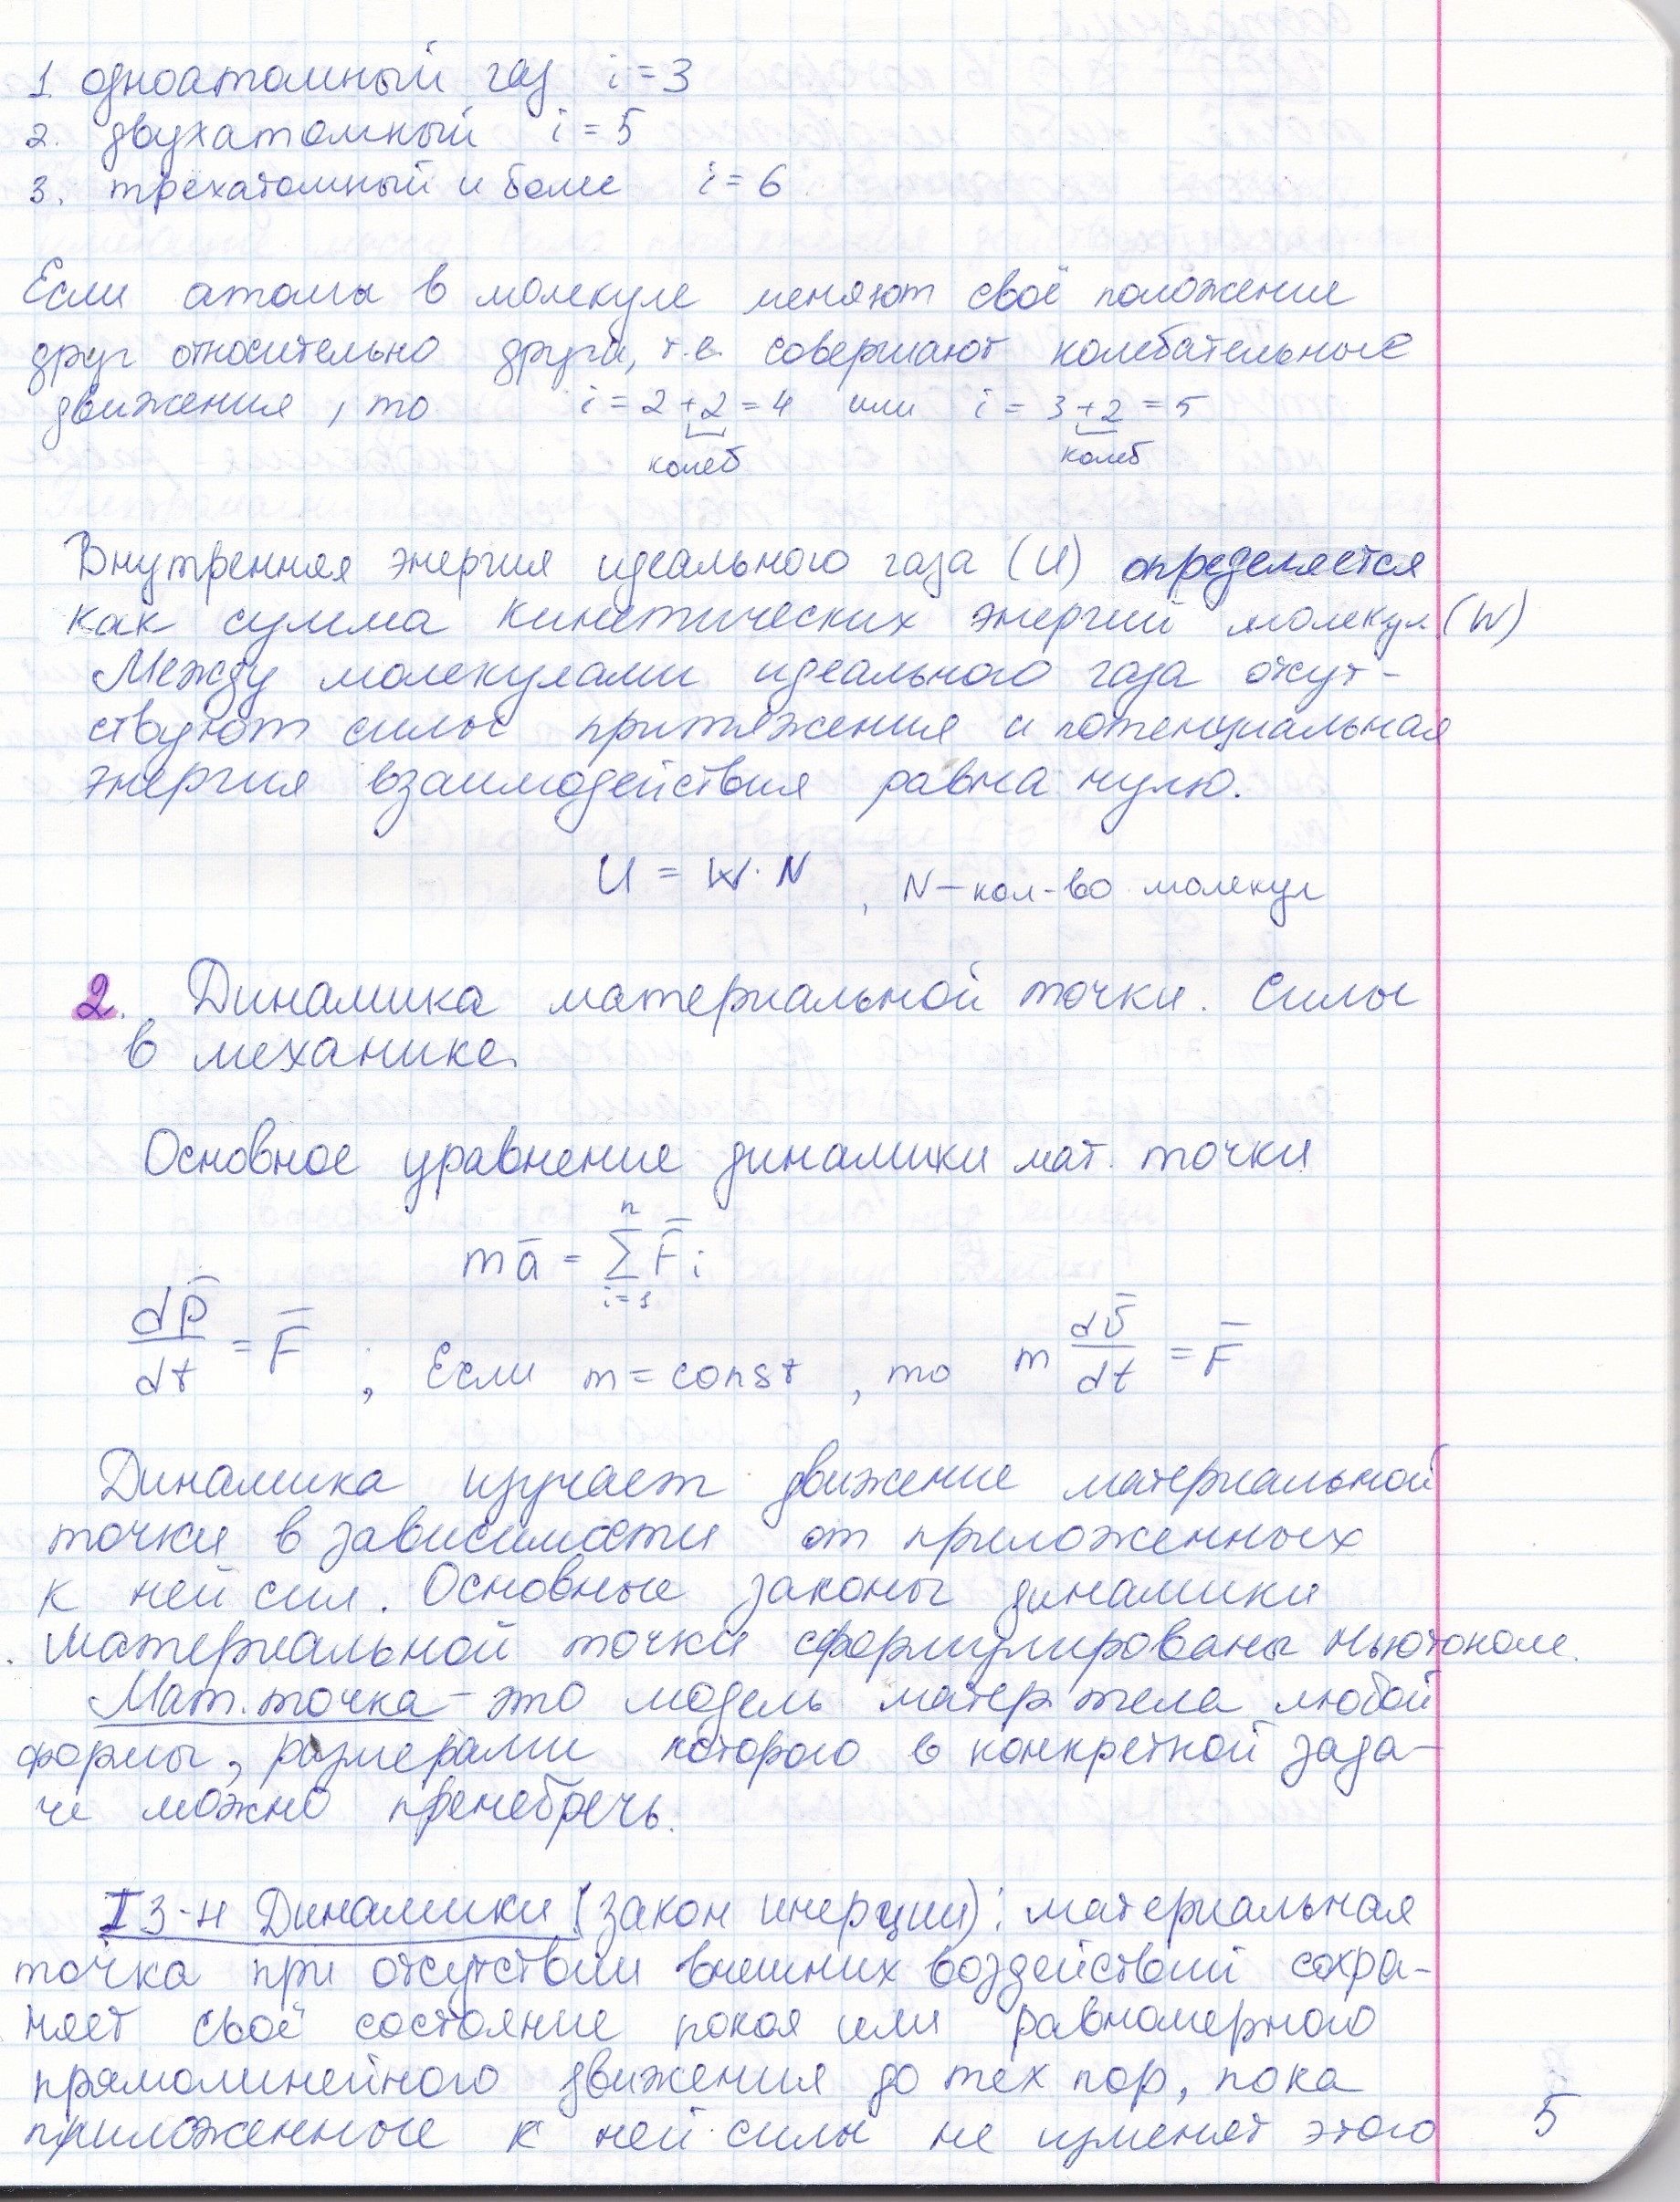 1. одноатомный газ i = 3
2. двухатомный i = 5
3. трёхатомный и более i = 6
Если атомы в молекуле меняют своё положение
друг относительно друга, т.е. совершают колебательные
движения, то i = 2 + 2 = 4 или i = 3 + 2 = 5
колеб колеб
Внутренняя энергия идеального газа (U) определяется
как сумма кинетических энергий молекул (W)
Между молекулами идеального газа отсут-
ствуют силы притяжения и потенциальная
энергия взаимодействия равна нулю.
U = W · N , N – кол-во молекул
2. Динамика материальной точки. Силы
в механике.
Основное уравнение динамики мат. точки
n
ma̅ = Σ F̅i
i=1
dp̅/dt = F̅ ; Если m = const , то m dv̅/dt = F̅
Динамика изучает движение материальной
точки в зависимости от приложенных
к ней сил. Основные законы динамики
материальной точки сформулированы Ньютоном.
Мат. точка – это модель матер тела любой
формы, размерами которого в конкретной зада-
че можно пренебречь.
I з-н Динамики (закон инерции): материальная
точка при отсутствии внешних воздействий сохра-
няет своё состояние покоя или равномерного
прямолинейного движения до тех пор, пока
приложенные к ней силы не изменят этого
5